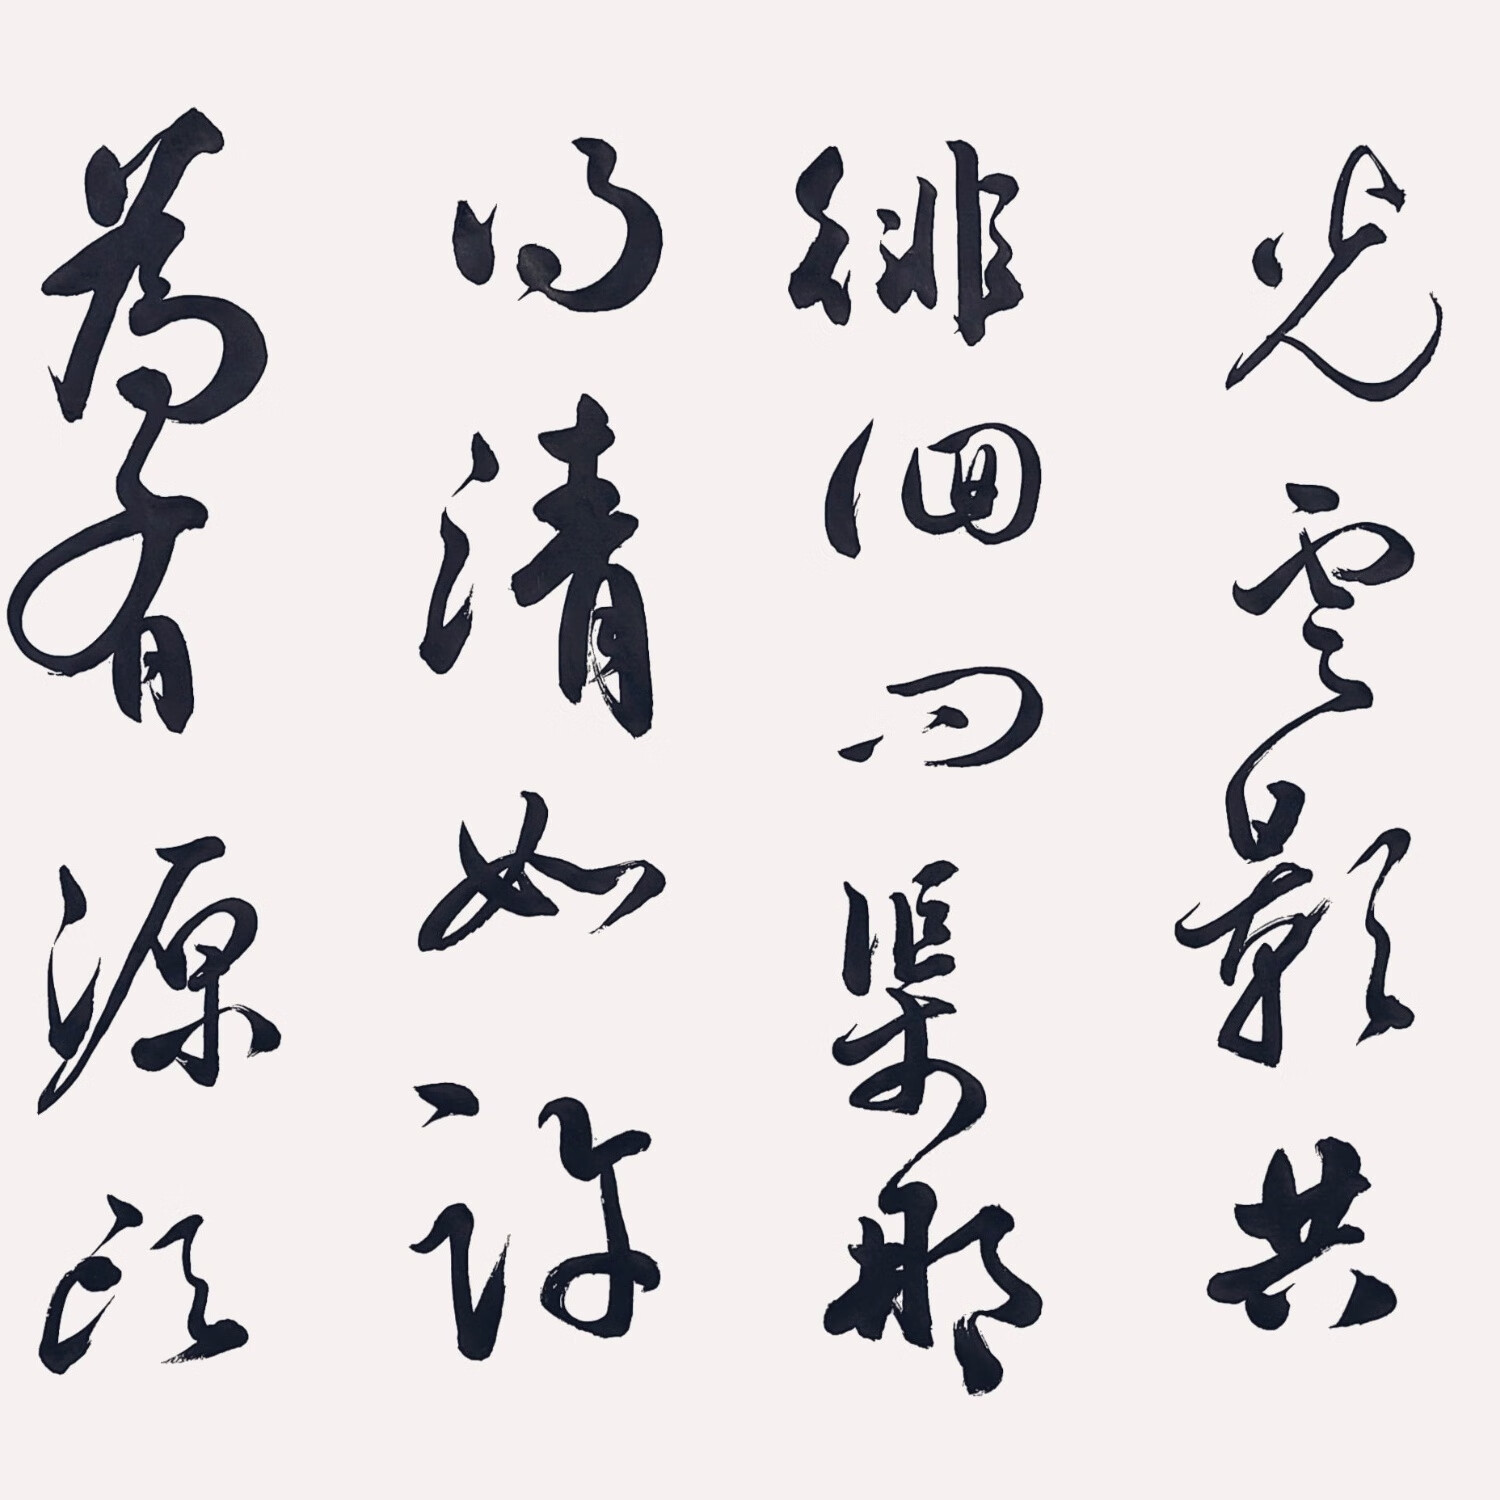 光雲影共
徘徊問渠那
得清如許
為有源頭